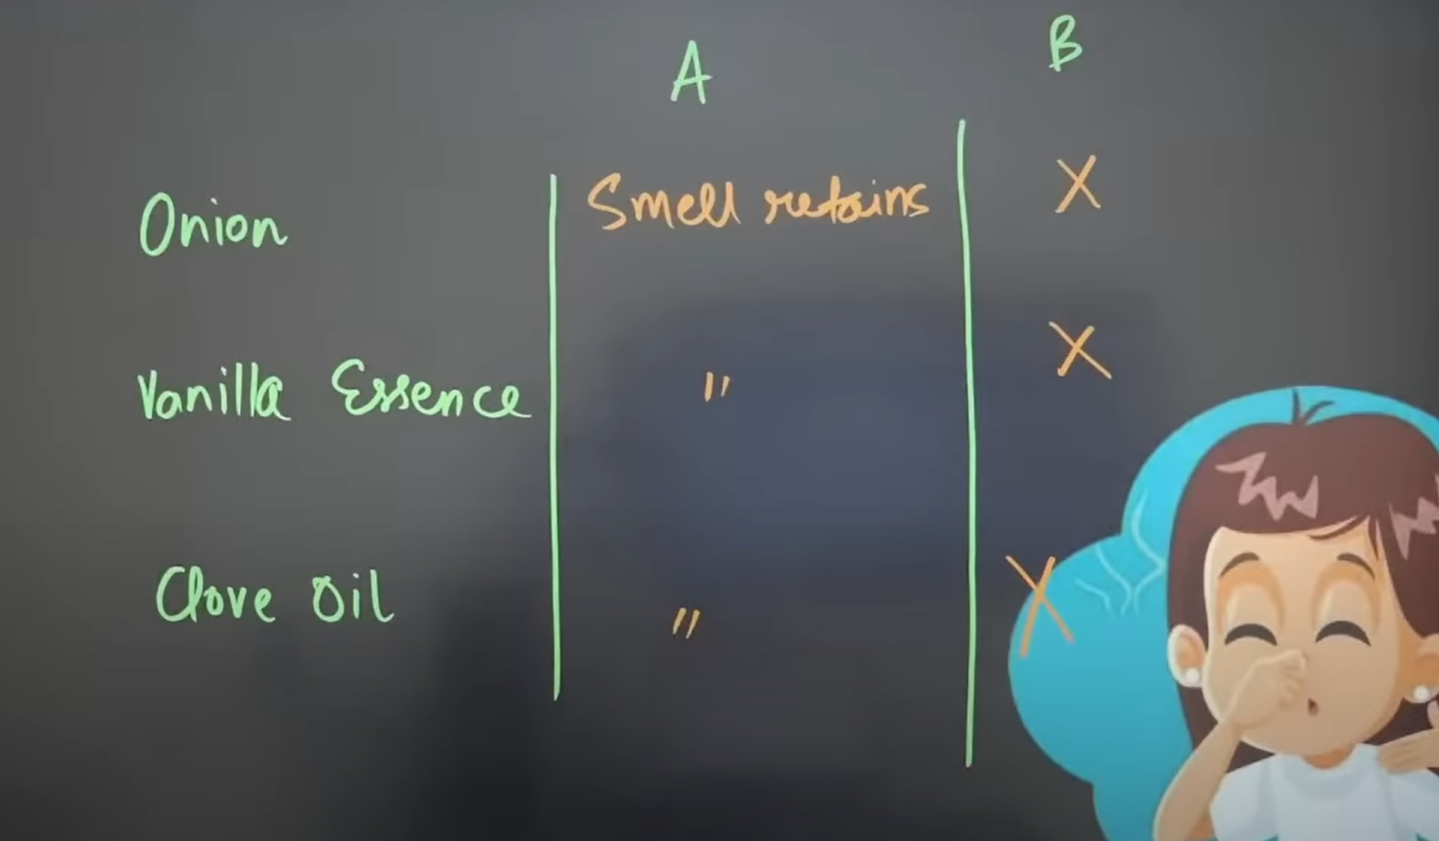 A B
Onion Smell retains X
Vanilla Essence " X
Clove Oil " X